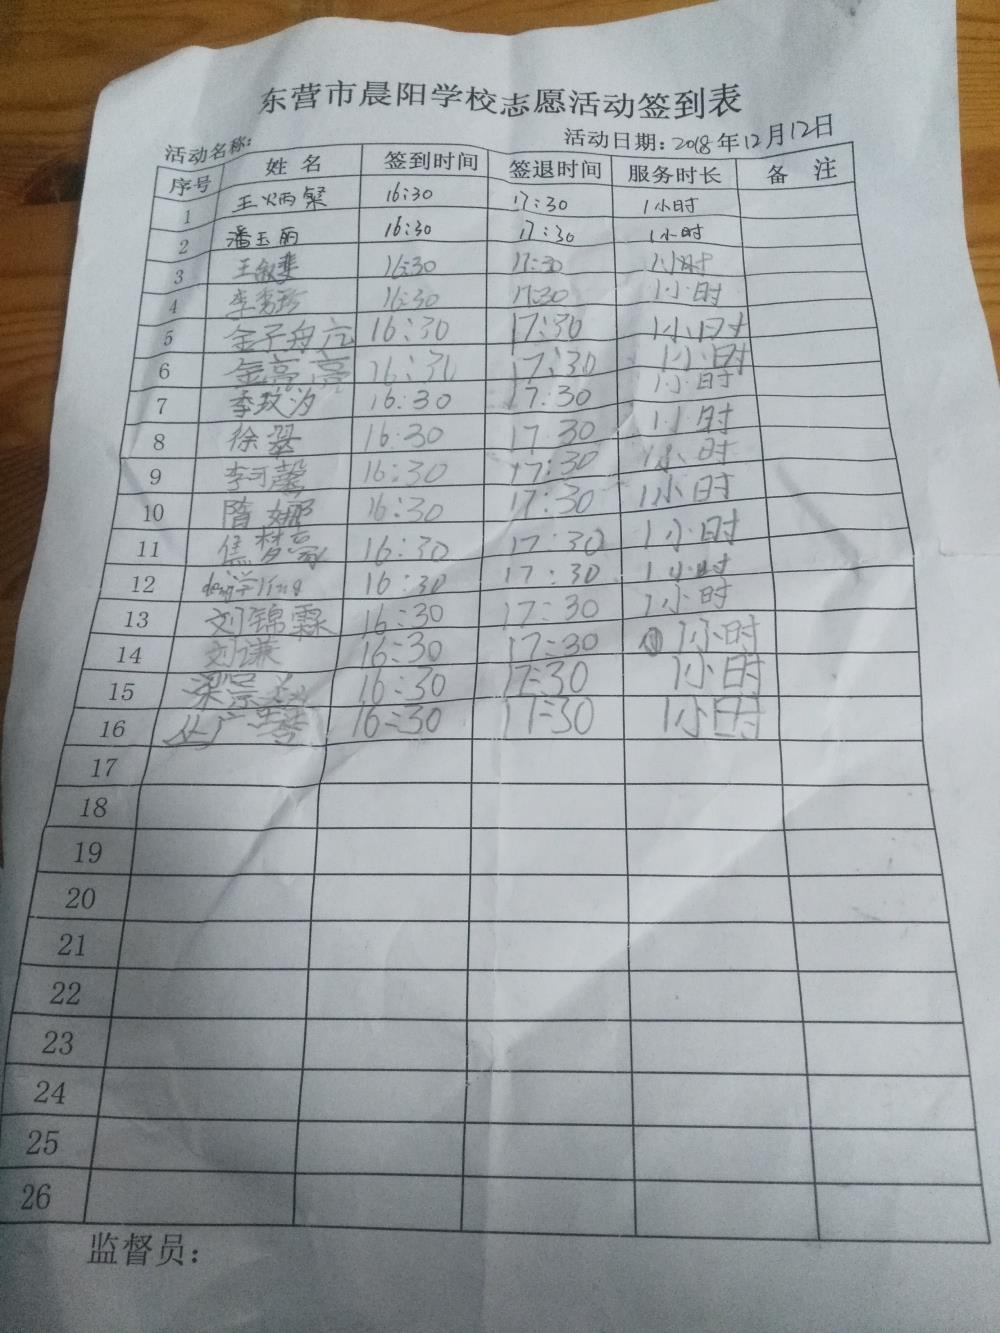 东营市晨阳学校志愿活动签到表
活动名称: 活动日期: 2018年12月12日
序号 姓名 签到时间 签退时间 服务时长 备注
1 王火丙粲 16:30 17:30 1小时
2 潘玉丽 16:30 17:30 1小时
3 王 16:30 17:30 1小时
4 李 16:30 17:30 1小时
5 金子舟 16:30 17:30 1小时
6 金亮亮 16:30 17:30 1小时
7 李玟汐 16:30 17:30 1小时
8 徐翠 16:30 17:30 1小时
9 李可馨 16:30 17:30 1小时
10 隋娜 16:30 17:30 1小时
11 梦 16:30 17:30 1小时
12 16:30 17:30 1小时
13 刘锦霖 16:30 17:30 1小时
14 刘谦 16:30 17:30 1小时
15 梁 16:30 17:30 1小时
16 丛广 16:30 17:30 1小时
17
18
19
20
21
22
23
24
25
26
监督员: